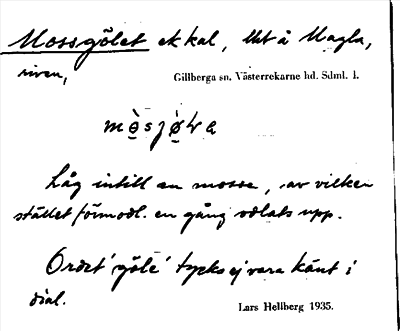 Mossgölet ekkal, Utt å Magla,
riven,
Gillberga sn. Västerrekarne hd. Sdml. l.
Låg intill en mosse, av vilken
stället förmodl. en gång odlats upp.
Ordet 'göle' tycks ej vara känt i
dial.
Lars Hellberg 1935.